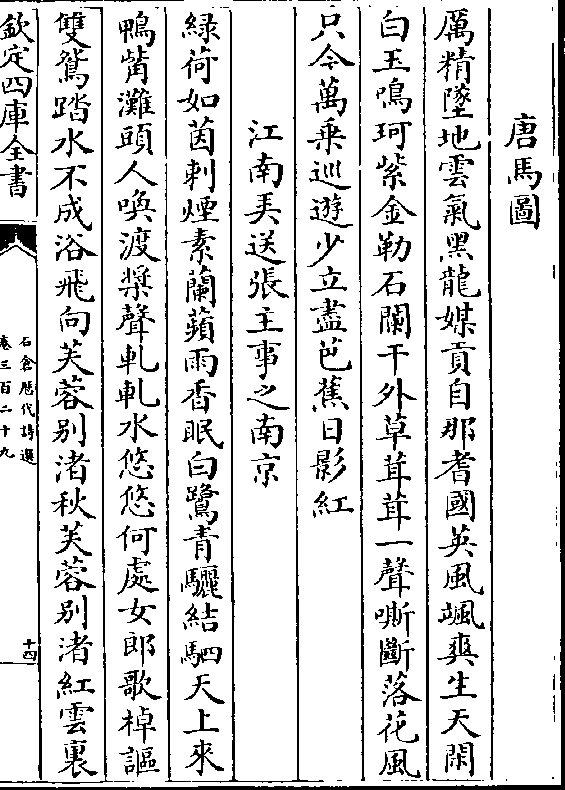 唐馬圖
厲精墜地雲氣黑龍媒貢自那耆國英風颯爽生天閑
白玉鳴珂紫金勒石闌干外草茸茸一聲嘶斷落花風
只今萬乗巡遊少立盡芭蕉日影紅
江南弄送張主事之南京
緑荷如茵刺煙素蘭蘋雨香眠白鷺青驪結駟天上來
鴨觜灘頭人喚渡槳聲軋軋水悠悠何處女郎歌棹謳
雙鴛踏水不成浴飛向芙蓉别渚秋芙蓉别渚紅雲裏
欽定四庫全書
石倉歴代詩選
卷三百二十九
十四